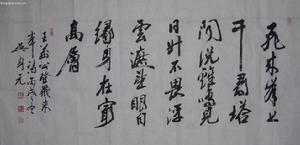 飛來峰上
千尋塔
聞說雞鳴見
日升不畏浮
雲遮望眼自
緣身在最
高層
王安公登飛來
峰詩丙戌冬